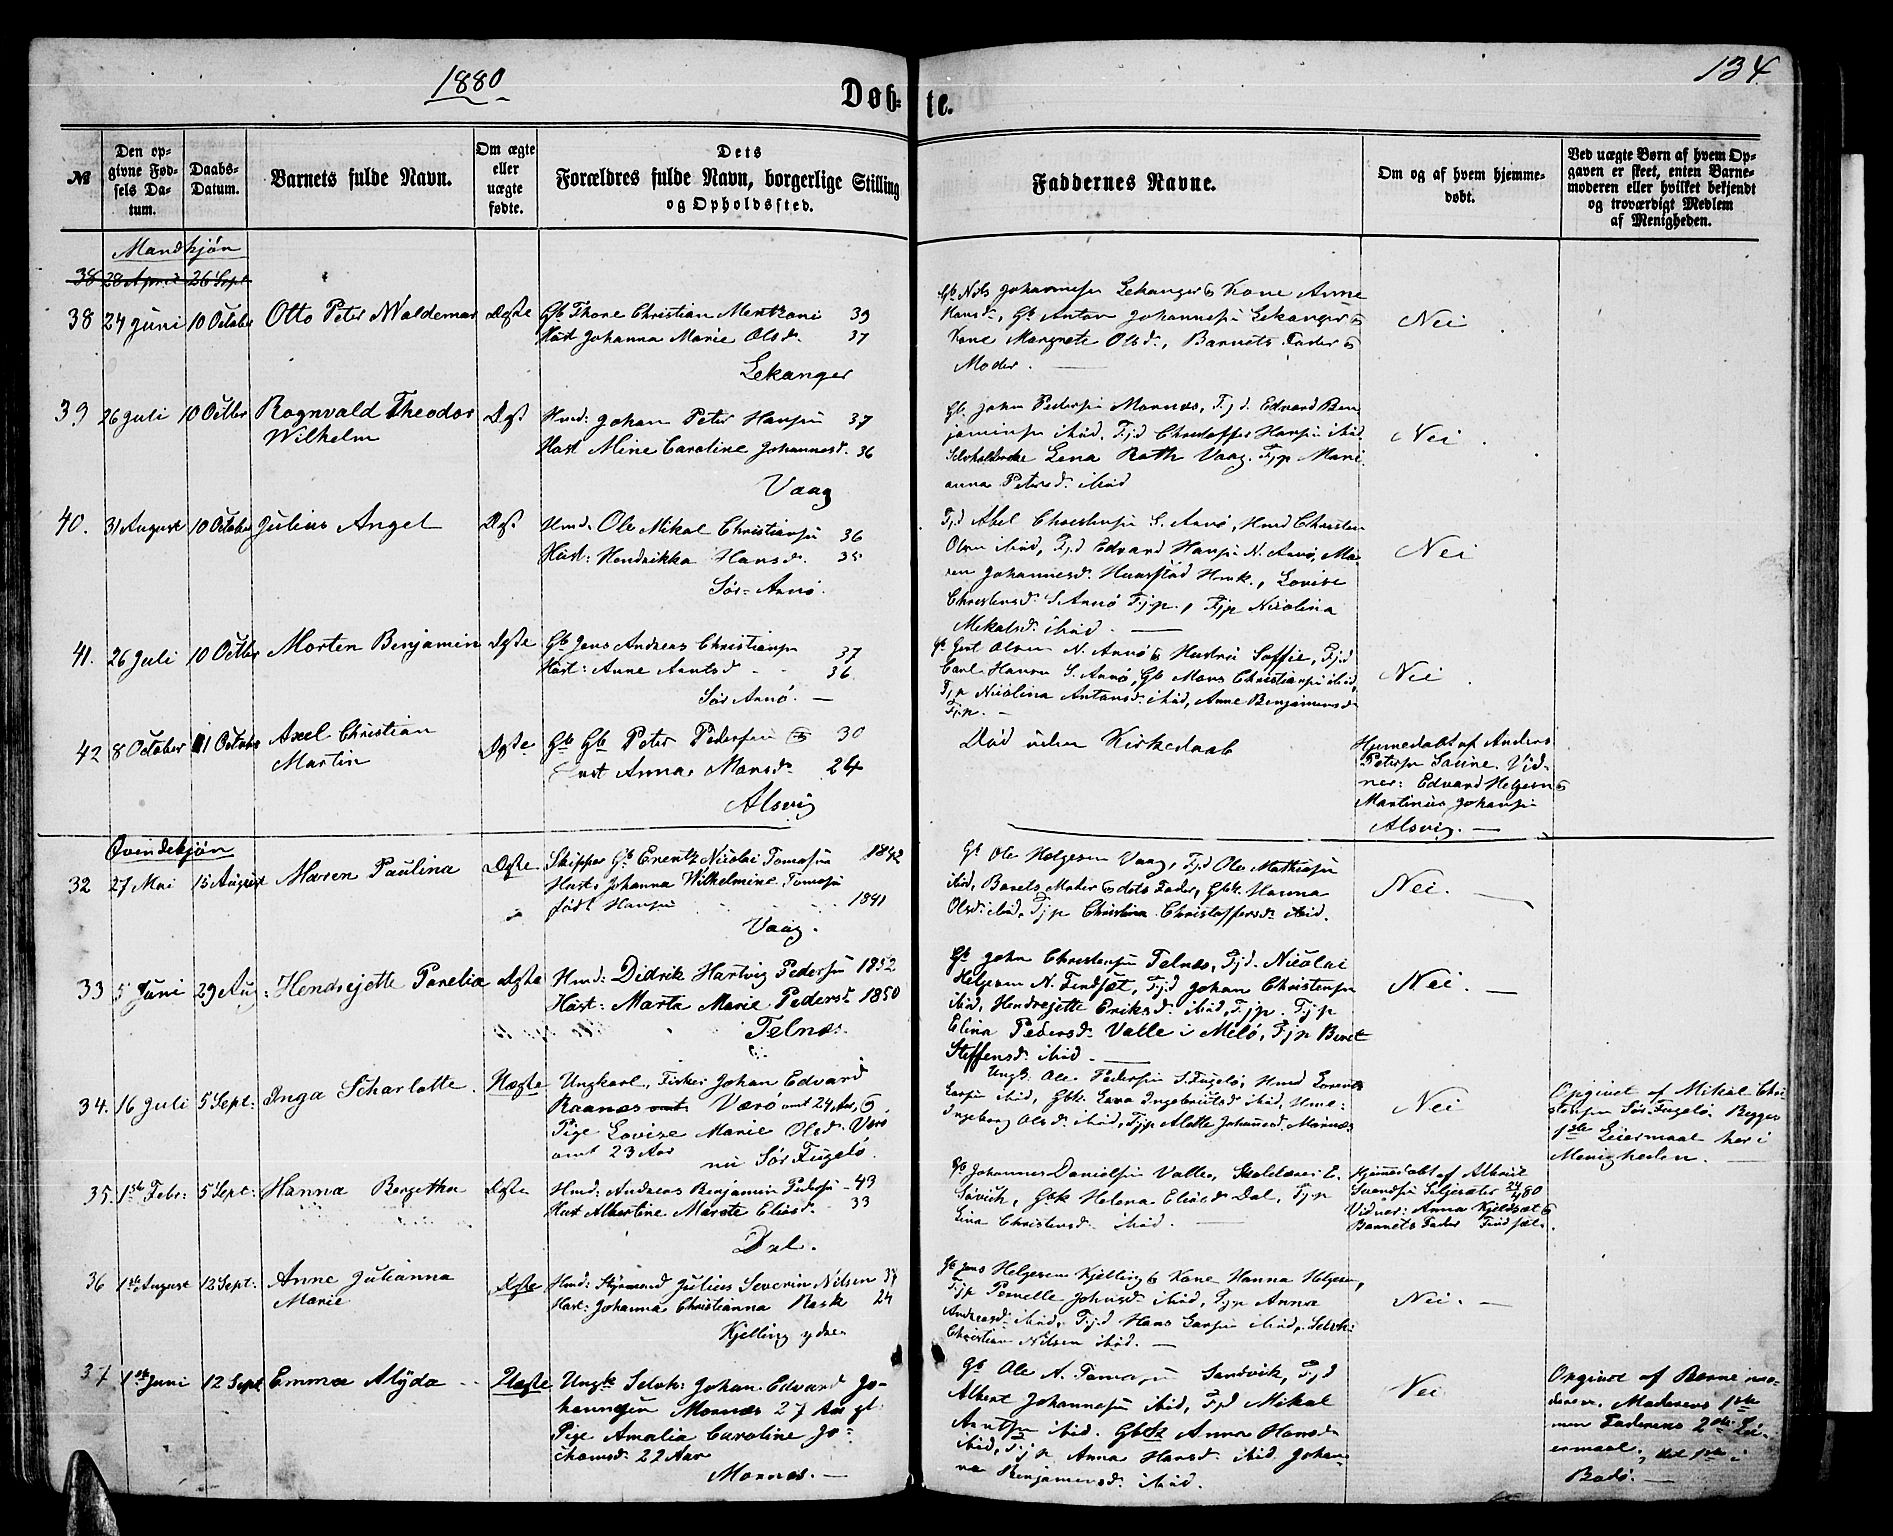 1880
134.
Døb-
te.
№
Den op-
givne Fød-
sels Da-
tum.
Daabs-
Datum.
Barnets fulde Navn.
Om ægte
eller
uægte
fødte.
Dets
Forældres fulde Navn, borgerlige Stilling
og Opholdssted.
Faddernes Navne.
Om og af hvem hjemme-
døbt.
Ved uægte Børn af hvem Op-
gaven er skeet, enten Barne-
moderen eller hvilket bekjendt
og troværdigt Medlem
af Menigheden.
Mandkjøn
38 28 April 26 Sept
38 24 Juni 10 October Otto Peter Waldemar Ægte
Gb Thore Christian Mentzoni 39
Hust Johanna Marie Olsd. 37
Lekanger
Gb Nils Johannesen Lekanger & Kone Anne
Hansd., Gb Anton Johannesen Lekanger &
Kone Margrete Olsd., Barnets Fader &
Moder.
Nei
39 26 Juli 10 Octbr Rognvald Theodor
Wilhelm
Ægt
Hmd: Johan Peter Hansen 37
Hust Mine Caroline Johannesd. 36
Vaag
Gb. John Pedersen Mornæs, Fjd. Edvard Ben-
jaminsen ibid, Fjd Christoffer Hansen ibid
Lena Rath Vaag, Fjp Mari-
anna Petersd. ibid
Nei
40. 31 August 10 October Julius Angel Ægt
Hmd: Ole Mikal Christiansen 36
Hust: Hendrikka Hansd. 35
Sør-Arnø.
Fjd Axel Christensen S. Arnø, Hmd Christen
Olsen ibid, Fjd Edvard Hansen N. Arnø, Ma-
ren Johannesd. Hunstad Hmk., Lovise
Christensd. S. Arnø Fjp., Fjp Nicolina
Mikalsd. ibid.
Nei
41. 26 Juli 10 Octbr Morten Benjamin Ægte
Gb Jens Andreas Christiansen 37
Hust: Anne Arntsd 36
Sør Arnø.
Gb Gert Olsen N. Arnø & Hustru Soffie, Fjd
Carl Hansen S. Arnø, Gb Mons Christiansen ibid,
Fjp Nicolina Antonsd. ibid, Anne Benjaminsd.
Fjp.
Nei
42 8 October 11 October Axel Christian
Martin
Ægte
Gb Gb Peter Pedersen & 30
Hust Anna Monsd. 24
Alsvig
Død uden Kirkedaab
Hjemedøbt af Anders
Petersen Saune. Vid-
ner: Edvard Helgesen &
Martinus Johansen
Alsvig.
Qvindekjøn
32 27 Mai 15 August Maren Paulina Ægte
Skipper Gb Erentz Nicolai Tomasen 1842
Hust: Johanna Wilhelmine Tomasen
født Hansen 1841
Vaag.
Gb Ole Helgesen Vaag, Fjd Ole Mathisen
ibid, Barnets Moder & dets Fader, Gbk Hanna
Olsd. ibid, Fjp Christina Christoffersd. ibid.
Nei.
33 5 Juni 29 Aug: Hendrejette Parelia Ægte
Hmd: Didrik Hartvig Pedersen 1852
Hust: Marta Marie Pedersd. 1850
Telnæs
Gb John Christensen Telnæs, Fjd. Nicolai
Helgesen N. Findset, Fjd Johan Christensen
ibid, Hendrejette Eriksd. ibid, Fjp. Fjp
Elina Pedersd. Valle i Melø, Fjp Beret
Steffensd. ibid.
Nei.
34. 16 Juli 5 Sept: Inga Scharlotte. Uægte
Ungkarl, Fisker Johan Edvard
Raanæs omt Værø omt 24 Aar, &
Pige Lovise Marie Olsd. Værø
omt 23 Aar nu Sør Fugelø.
Ungk. Ole Pedersen S. Fugelø, Hmd Lorents
Larsen ibid, Gbk. Lava Ingebrigtsd ibid, Hmk:
Ingeborg Olsd. ibid, Fjp Alette Johansd. Mornæs
Nei
Opgivet af Mikal Chri-
stensen Sør. Fugelø. Begges
1ste Leiermaal her i
Menigheden.
35. 1ste Febr: 5 Sept: Hanna Bergetha Ægte
Hmd: Andreas Benjamin Pedersen 43
Hust Albertine Marete Eliasd. 33
Dal.
Gb Johannes Danielsen Valle, Skoldærer E.
Sørvich, Gbk Helena Eliasd. Dal, Fjp
Lina Christensd. ibid.
Hjemmedøbt af Albrigt
Svendsen Seljesæter 24/4 80
Vidner: Anna Kjeldsæt &
Barnets Fader Findset.
36 1ste August 12 Sept: Anne Julianna
Marie
Ægte
Hmd: Styrmand Julius Severin Nilsen 37
Hust: Johanna Christianna Rask 24
Kjelling ydre
Gb Jens Helgesen Kjelling & Kone Hanna Helgesen,
Fjp Pernelle Johnsd. ibid, Fjp Anna
Andreasd. ibid, Fjd Hans Larsen ibid, Selvh:
Christian Nilsen ibid.
Nei.
37 1ste Juni 12 Sept Emma Alyda Uægte
Ungk Selvh: Johan Edvard Jo-
hannesen Mornæs 27 Aar gl.
Pige Amalia Caroline Jo-
chomsd. 22 Aar
Mornæs.
Gb Ole A. Tomasen Sandvik, Fjd
Albert Johannesen ibid, Fjd Mikal
Arntsen ibid. Gbk Anna Hansd.
ibid, Fjp Anna Hansd. ibid, Johan-
na Benjaminsd. ibid.
Nei
Opgivet af Barne mo-
deren. Moderens 1ste
men Faderens 2det Lei-
ermaal, det 1ste i
Bodø.